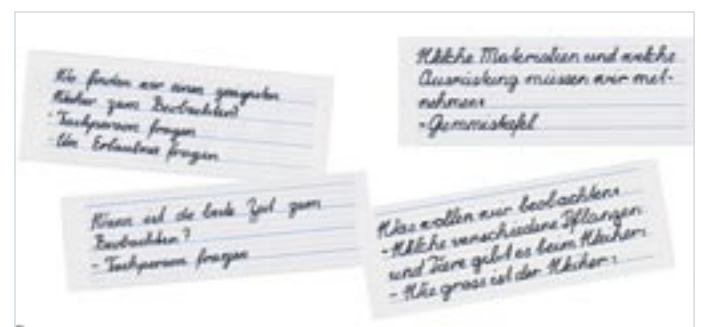 Wo finden wir einen geeigneten
Weiher zum Beobachten?
- Fachperson fragen
- Um Erlaubnis fragen
Welche Materialien und welche
Ausrüstung müssen wir mit-
nehmen?
- Gummistiefel
Wann ist die beste Zeit zum
Beobachten?
- Fachperson fragen
Was wollen wir beobachten?
- Welche verschiedene Pflanzen
und Tiere gibt es beim Weiher?
- Wie gross ist der Weiher?